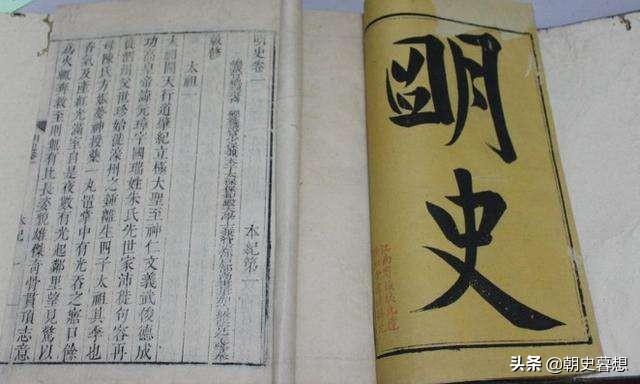 明史卷一 本紀第一
敕修
太祖一
太祖開天行道肇紀立極大聖至神仁文義武俊德成
功高皇帝諱元璋字國瑞姓朱氏先世家沛徙句容再
徙泗州父世珍始徙濠州之鍾離生四子太祖其季也
母陳氏方娠夢神授藥一丸置掌中有光吞之寤口餘
香氣及產紅光滿室自是夜數有光起鄰里望見驚以
為火輒奔救至則無有比長姿貌雄傑奇骨貫頂志意
本紀一
明史
头条 @朝史暮想